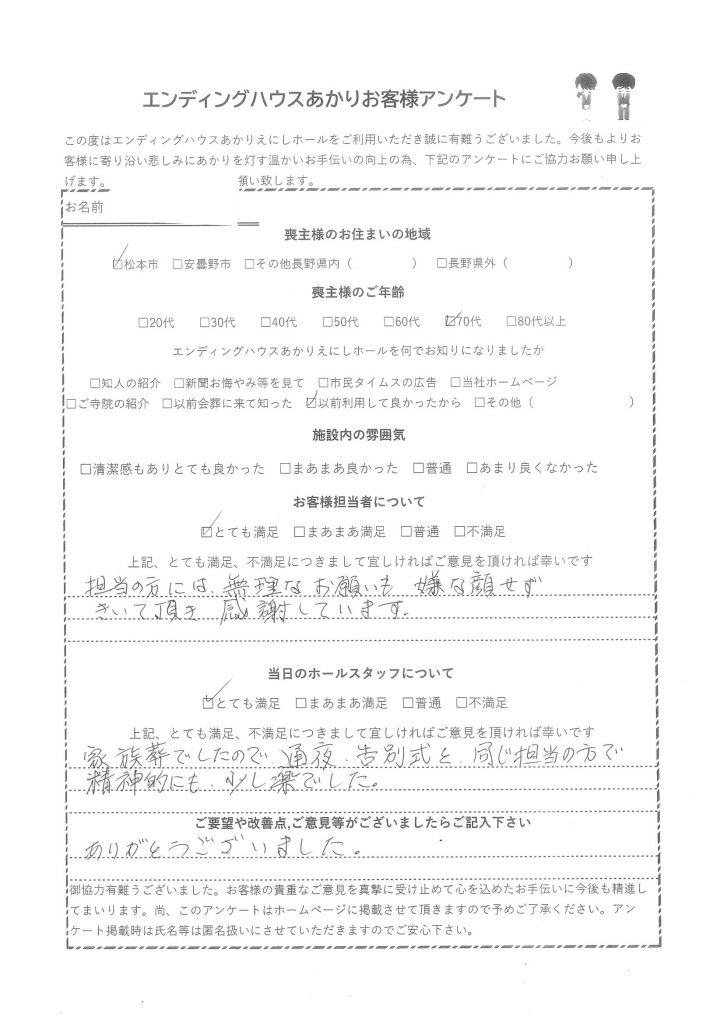 エンディングハウスあかりお客様アンケート
この度はエンディングハウスあかりえにしホールをご利用いただき誠に有難うございました。今後もよりお
客様に寄り沿い悲しみにあかりを灯す温かいお手伝いの向上の為、下記のアンケートにご協力お願い申し上
げます。 願い致します。
お名前
喪主様のお住まいの地域
☑松本市 □安曇野市 □その他長野県内（ ） □長野県外（ ）
喪主様のご年齢
□20代 □30代 □40代 □50代 □60代 ☑70代 □80代以上
エンディングハウスあかりえにしホールを何でお知りになりましたか
□知人の紹介 □新聞お悔やみ等を見て □市民タイムスの広告 □当社ホームページ
□ご寺院の紹介 □以前会葬に来て知った ☑以前利用して良かったから □その他（ ）
施設内の雰囲気
□清潔感もありとても良かった □まあまあ良かった □普通 □あまり良くなかった
お客様担当者について
☑とても満足 □まあまあ満足 □普通 □不満足
上記、とても満足、不満足につきまして宜しければご意見を頂ければ幸いです
担当の方には、無理なお願いも 嫌な顔せず
きいて頂き 感謝しています.
当日のホールスタッフについて
☑とても満足 □まあまあ満足 □普通 □不満足
上記、とても満足、不満足につきまして宜しければご意見を頂ければ幸いです
家族葬でしたので 通夜、告別式と、同じ担当の方で
精神的にも、少し楽でした。
ご要望や改善点,ご意見等がございましたらご記入下さい
ありがとうございました。
御協力有難うございました。お客様の貴重なご意見を真摯に受け止めて心を込めたお手伝いに今後も精進し
てまいります。尚、このアンケートはホームページに掲載させて頂きますので予めご了承ください。アン
ケート掲載時は氏名等は匿名扱いにさせていただきますのでご安心下さい。